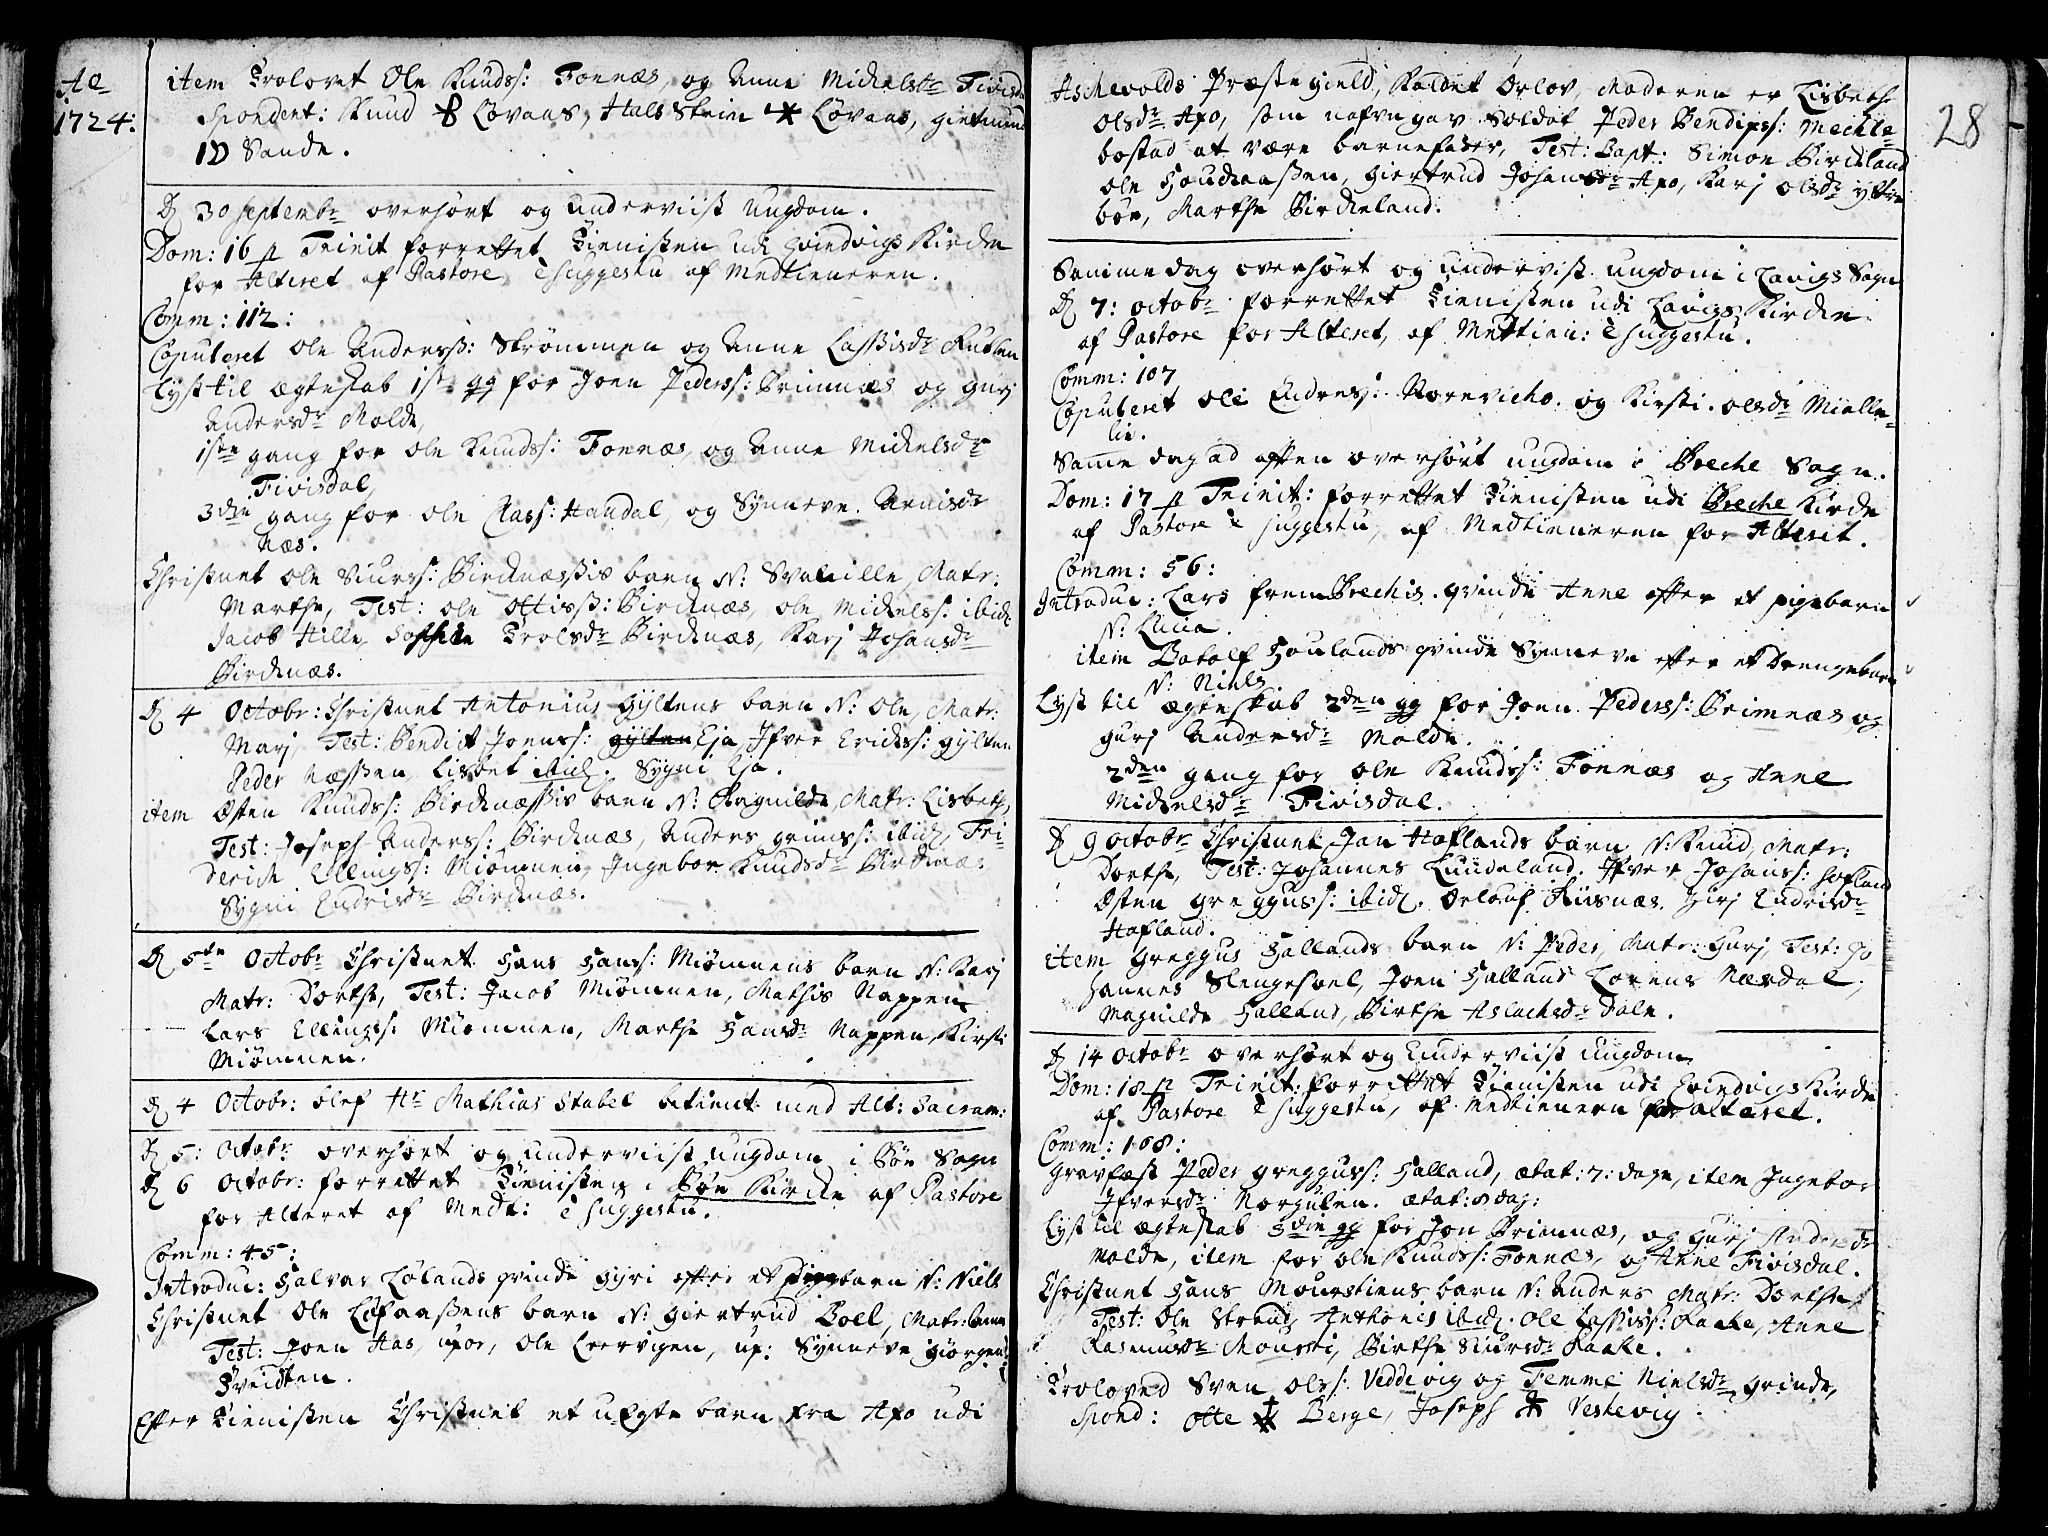 Ao
1724:
item Trolovet Ole Knudss: Fonnæs, og Anne Michelsdr Fivisdal
Spondent: Knud Løvaas, Hals Strin Løvaas, giertmund
ID Sande.
D 30 Septembr overhørt og underviist Ungdom.
Dom: 16 p Trinit forrettet Tienisten udi Evindvigs Kirche
for Alteret af Pastore, è suggestu af Medtieneren.
Comm: 112:
Copuleret Ole Anderss: Strømmen og Anne Lassisdr Rutlen
Lyst til ægteskab 1ste gg for Joen Pederss: Brimnæs og Gurj
Andersdr Molde,
1ste gang for Ole Knudss: Fonnæs, og Anne Michelsdr
Fivisdal,
3die gang for Ole Rass: Haudal, og Synneve Arnisdr
Næs.
Christnet Ole Siurss: Birchnæssis barn N: Matr:
Marthe, Test: Ole Ottiss: Birchnæs, Ole Michelss: ibid
Jacob Hille, Trolsdr Birchnæs, Karj Johansdr
Birchnæs.
D 4 Octobr: Christnet Antonius Gyltens barn N: Ole, Matr:
Marj, Test: Bendict Jonss: Eja, Ifver Erichss: Gylten
Peder Næssen, Lisbet ibid. Sygni Eja.
item Østen Knudss: Birchnæssis barn N: Ragnilde, Matr: Lisbeth,
Test: Joseph Anderss: Birchnæs, Anders Grimss: ibid, Fri-
derich Ellingss: Miømnen, Ingebor Knudsdr Birchnæs
Sygni Endrisdr Birchnæs.
D 5te Octobr Christnet Hans Hanss: Miømnens barn N: Karj
Matr: Dorthe, Test: Jacob Miømnen, Mathis Nappen
Lars Ellingss: Miømnen, Marthe Hansdr Nappen, Kirst:
Miømnen.
D 4 Octobr: blef Hr Mathias Stabel betient med Alt: Sacram:
D 5: Octobr overhørt og underviist ungdom i Bøe Sogn
D 6 Octobr: forrettet Tienisten i Bøe Kirche af Pastore
for Alteret af Medt: è suggestu.
Comm: 45:
Introduc: Halvar Lølands qvinde Gyri efter et barn N: Niels
Christnet Ole barn N: Giertrud Boel, Matr: Anne
Test: Joen Aas, Ole Leervigen, Synneve
Efter Tienisten Christnet et uEgte barn fra Apo udi
Aschevolds Præstegield, kaldet Orlov, Moderen er Lisbethe
Olsdr Apo, som nafngav Soldat Peder Bendixss: Mechle-
bostad at være barnefader, Test: Bapt: Simon Birchland
Ole Giertrud Johansdr Apo, Karj Olsdr yttre
bøe, Marthe Birchland.
Samme dag overhørt og underviist ungdom i Lavigs Sogn
D 7: Octobr forrettet Tienisten udi Lavigs Kirche
af Pastore for Alteret, af Medtien: è suggestu.
Comm: 107
Copuleret Ole Endress: Norevicho og Kirsti Olsdr Mielle-
lie.
Same dag ad aften overhørt ungdom i Breche Sogn.
Dom: 17 p Trinit: forrettet Tienisten udi Breche Kirche
af Pastore è suggestu, af Medtieneren for Alterit.
Comm: 56:
Introduc: Lars frem Brechis qvinde Anne efter et pigebarn
N: Lucia.
item Botolf Houlands qvinde Synneve efter et Drengebarn
N: Niels
Lyst til ægteskab 2den gg for Joen Pederss: Brimnæs og
Gurj Andersdr Molde.
2den gang for Ole Knudss: Fonnæs og Anne
Michelsdr Fivisdal.
D 9 Octobr Christnet Jan Haflands barn N: Knud, Matr:
Dorthe, Test: Johannes Lundeland. Ifver Johanss: Hofland
Østen Gregguss: ibid. Orlouf Riisnæs. Gurj Endrisdr
Hafland.
item Greggus Hallands barn N: Peder, Matr: Gurj, Test: Jo-
hannes Slengesoel, Joen Halland Lorens Nærdal,
Magnilde Halland, Birthe Aslachsdr Dale.
D 14 Octobr overhørt og Underviist Ungdom
Dom: 18 p Trinit: forrettet Tienisten udi Evindvigs Kirche
af Pastore è suggestu, af Medtienern for alteret.
Comm: 108:
Gravfæst Peder Gregguss: Halland, ætat: 7: dage, item Ingebor
Ifversdr Norgulen. ætat: 8 dag:
Lyst til ægteskab 3die gg for Jon Brimnæs, og Gurj Andersdr
Molde, item for Ole Knudss: Fonnæs, og Anne Fivisdal.
Christnet Hans Mourstiens barn N: Anders Matr: Dorthe
Test: Ole Strand, Anthonis ibid. Ole Lassiss: Raake, Anne
Rasmusdr Mousti, Birthe Siursdr Raake.
Troloved Sven Olss: Veddevig og Femme Nielsdr Grinde,
Spond: Otte Berge, Joseph Vestevig.
28